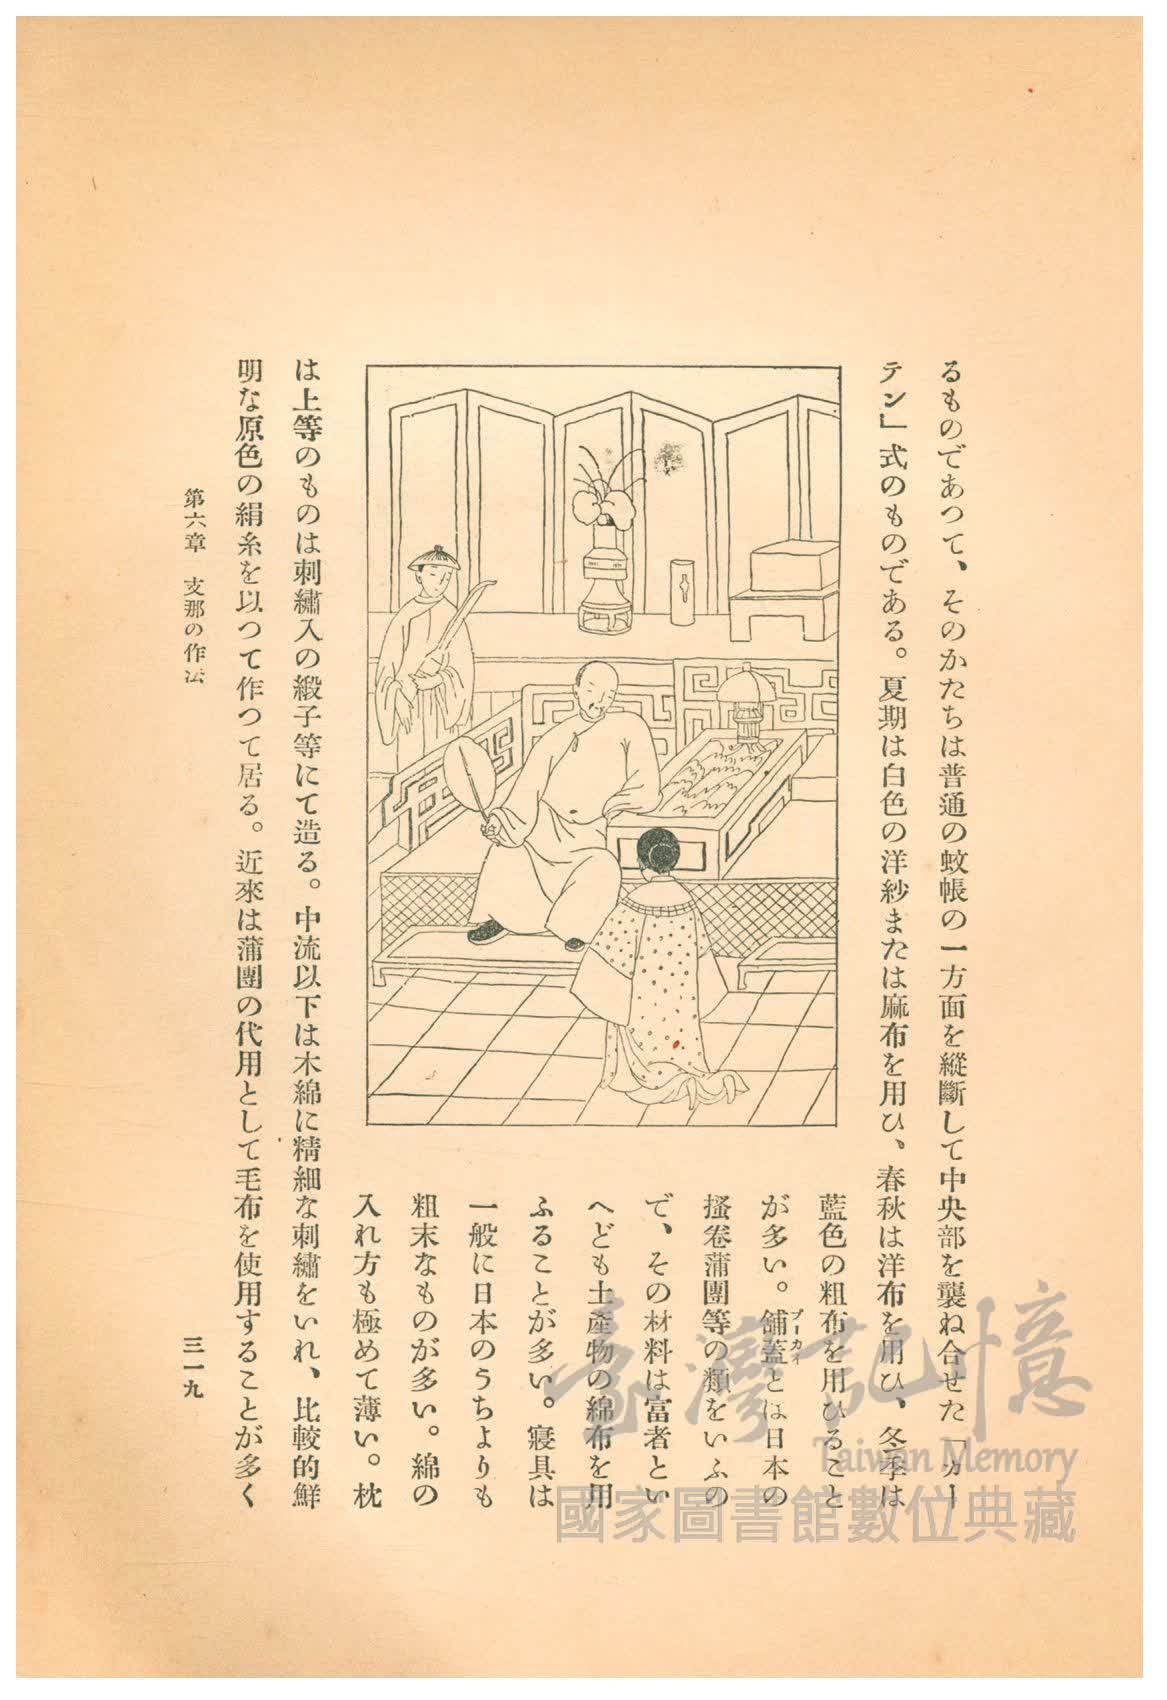 るものであつて、そのかたちは普通の蚊帳の一方面を縱斷して中央部を襲ね合せた「カー
テン」式のものである。夏期は白色の洋紗または麻布を用ひ、春秋は洋布を用ひ、冬季は
藍色の粗布を用ひること
が多い。舖蓋とは日本の
プーカイ
搔卷蒲團等の類をいふの
で、その材料は富者とい
へども土產物の綿布を用
ふることが多い。寢具は
一般に日本のうちよりも
粗末なものが多い。綿の
入れ方も極めて薄い。枕
は上等のものは刺繡入の緞子等にて造る。中流以下は木綿に精細な刺繡をいれ、比較的鮮
明な原色の絹糸を以つて作つて居る。近來は蒲團の代用として毛布を使用することが多く
第六章 支那の作法
三一九
臺灣記憶
Taiwan Memory
國家圖書館數位典藏